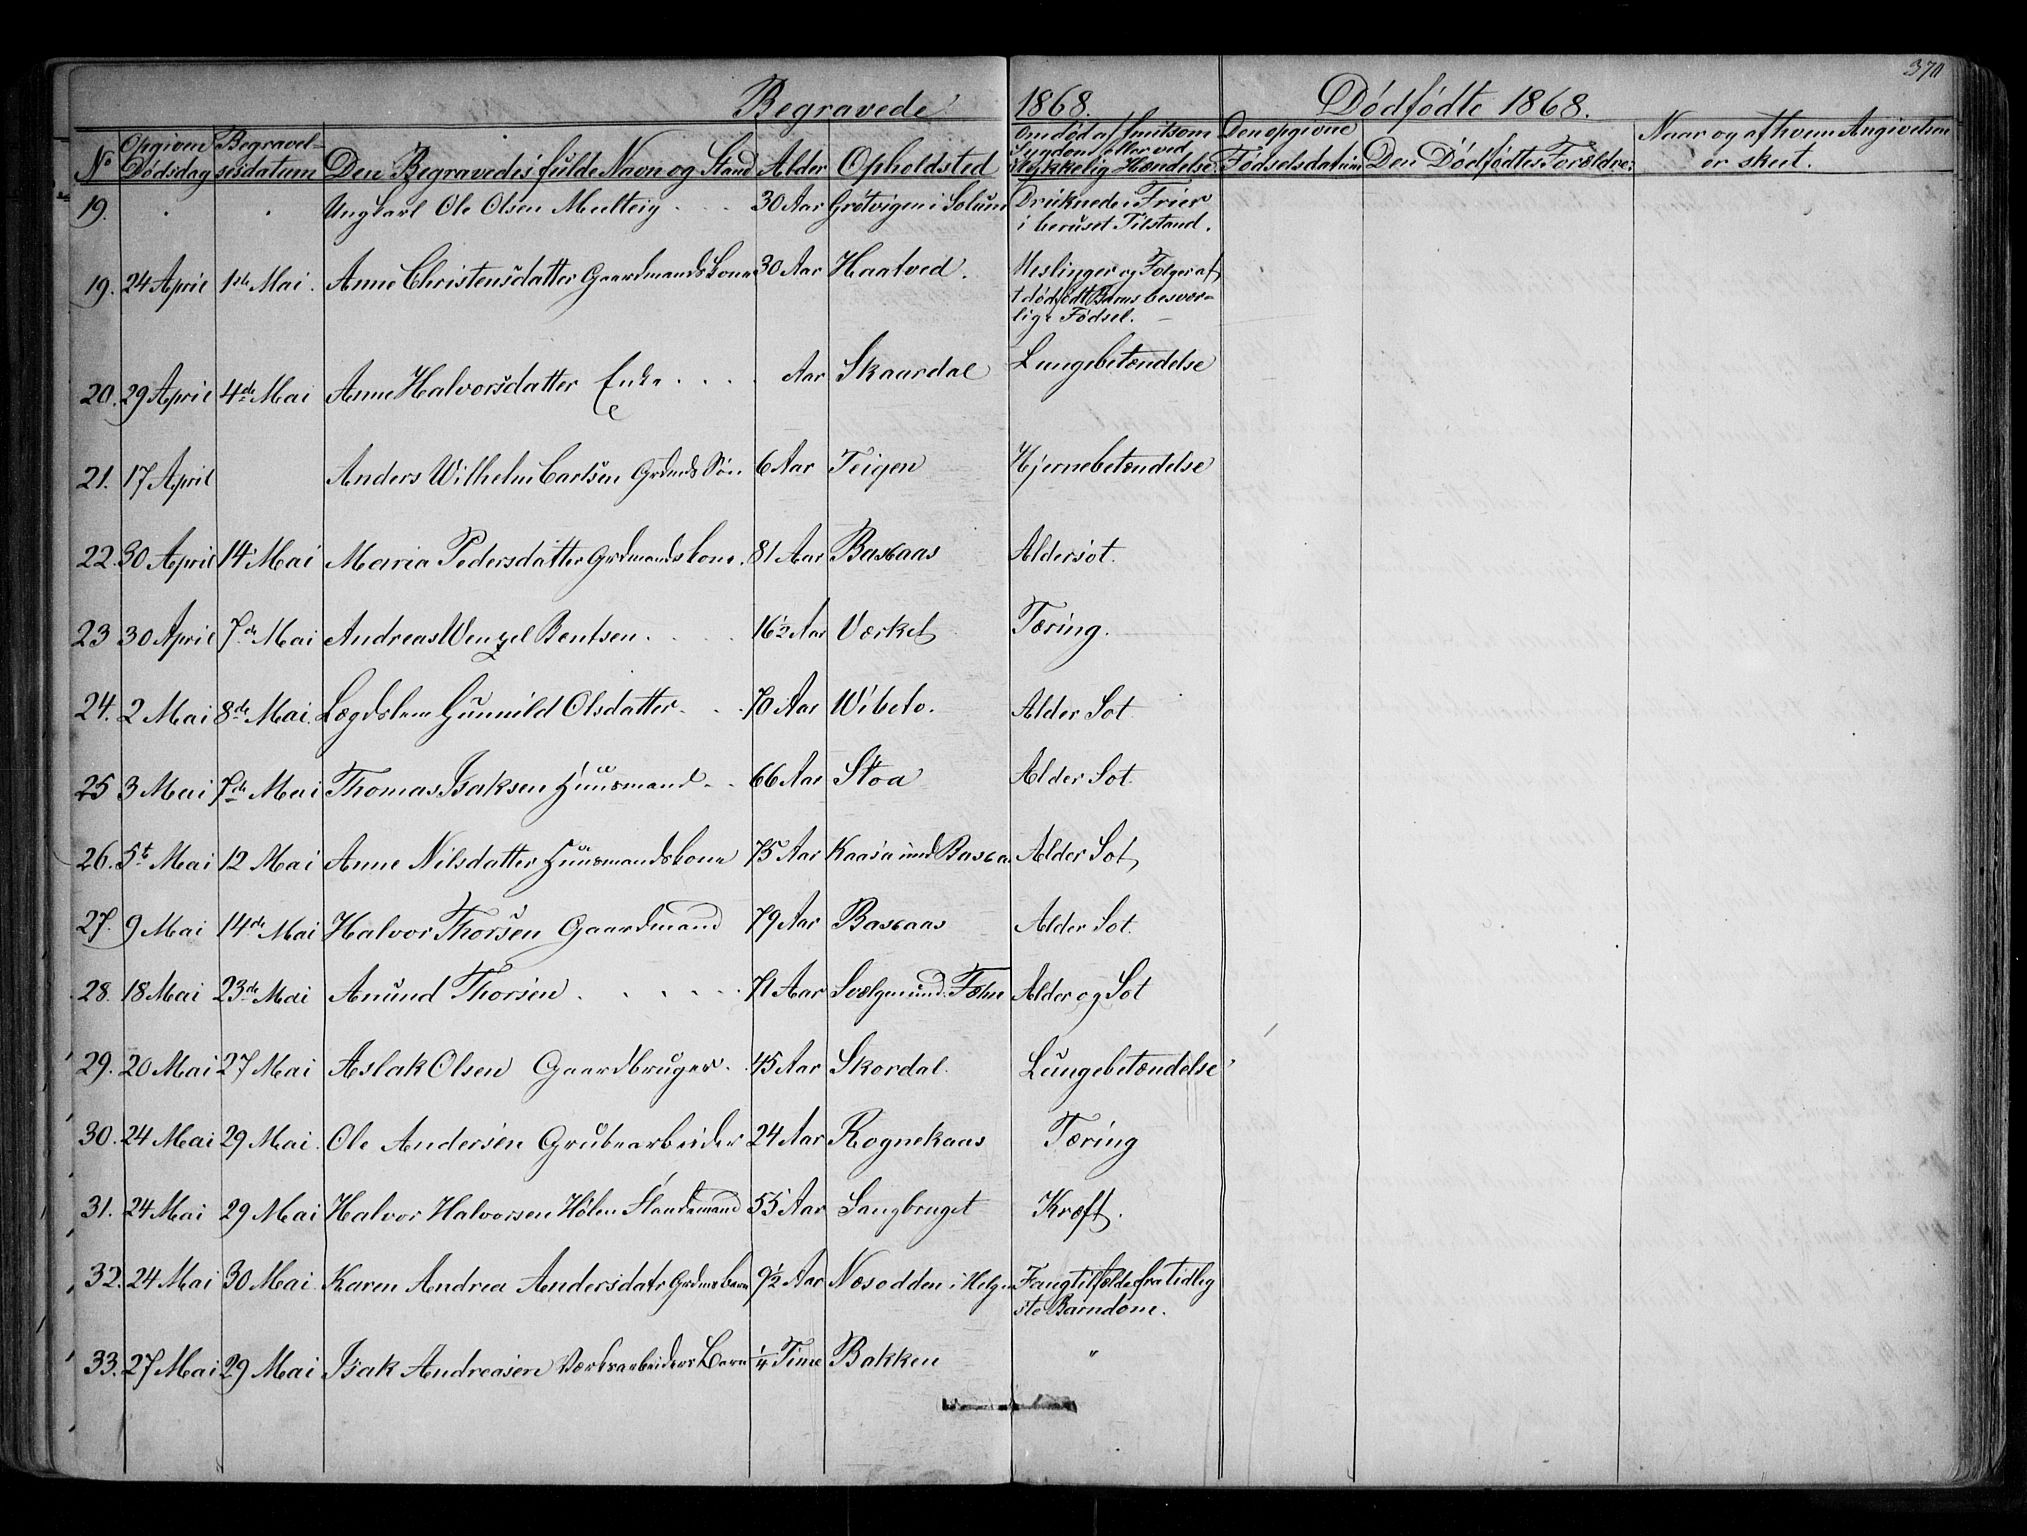 370
Begravede 1868. Dødfødte 1868.
No Opgivne Dødsdag Begravelsesdatum Den Begravedes fulde Navn og Stand Alder Opholdsted Om død af smitsom Sygdom eller ved Ulykkelig Hændelse. Den opgivne Fødselsdatum Den Dødfødtes Forældre. Naar og af hvem Angivelsen er skeet.
19. Ungkarl Ole Olsen Melteig 30 Aar Grotvigen i Solum Druknede i Frier
i beruset Tilstand.
19. 24 April 1ste Mai. Anne Christensdatter Gaardmandskone 30 Aar Haatved. Meslinger og Følger af
t dødfødt Barns besvær-
lige Fødsel.
20. 29 April 4de Mai Anne Halvorsdatter Enke Aar Skaardal Lungebetændelse
21. 17 April Anders Wilhelm Carlsen Grdmds Søn 6 Aar Teigen Hjernebetændelse
22. 30 April 14 Mai Maria Pedersdatter Grdmandskone. 81 Aar Baskaas Aldersot.
23 30 April 7de Mai Andreas Wenzel Bentsen. 16½ Aar Værket Tæring.
24. 2 Mai 8de Mai. Lægdslem Gunnild Olsdatter 70 Aar Wibeto. Alder Sot
25 3 Mai 7de Mai Thomas Isaksen Huusmand 66 Aar Stoa Alder Sot.
26. 5te Mai 12 Mai Anne Nilsdatter Huusmandskone 75 Aar Kaasa und Baskaa Alder Sot
27. 9 Mai 14de Mai Halvor Thorsen Gaardmand 79 Aar Baskaas Alder Sot.
28. 18 Mai 23de Mai Anund Thorsen 71 Aar Svelgen und. Fæhn Alder og Sot
29. 20 Mai 27 Mai Aslak Olsen Gaardbruger 45 Aar Skordal. Lungebetændelse
30. 24 Mai 29 Mai. Ole Andersen Grubearbeider 24 Aar Rognekaas Tæring
31. 24 Mai 29 Mai Halvor Halvorsen Holen Strandmand 55 Aar Saugbruget Kræft.
32. 24 Mai 30 Mai Karen Andrea Andersdatr Grdms barn 9½ Aar Næsodden i Helgen Fangtilfælde fra tidlig
ste Barndom.
33. 27 Mai 29 Mai Isak Andreasen Værksarbeiders Barn ¼ Time Bakken "